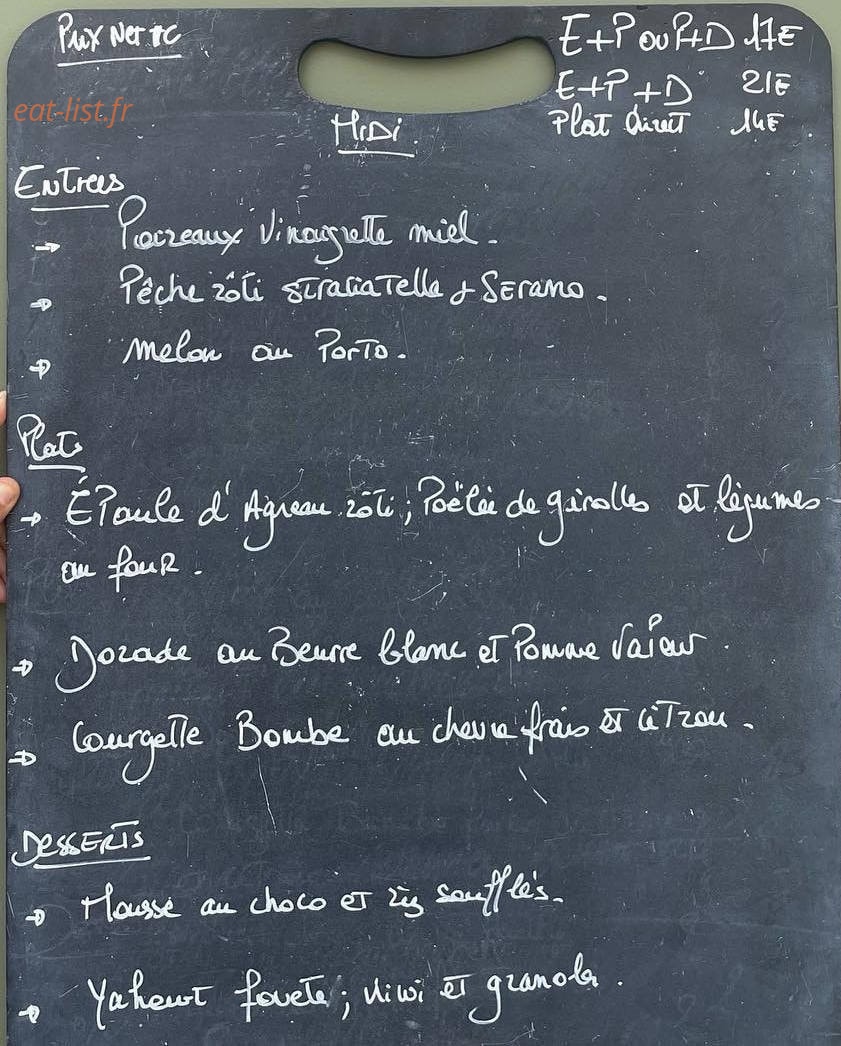 Prix Net TC
E+P ou P+D 17E
E+P+D 21E
Plat direct 14E
eat-list.fr
Midi
Entrées
→ Poireaux Vinaigrette miel.
→ Pêche rôti straciatella & Serano.
→ Melon au Porto.
Plats
→ Épaule d'Agneau rôti ; Poëlée de girolles et légumes
au four.
→ Dorade au Beurre blanc et Pomme Vapeur.
→ Courgette Bombe au chevre frais et citron.
Desserts
→ Mousse au choco et riz soufflés.
→ Yahourt foueté ; kiwi et granola.